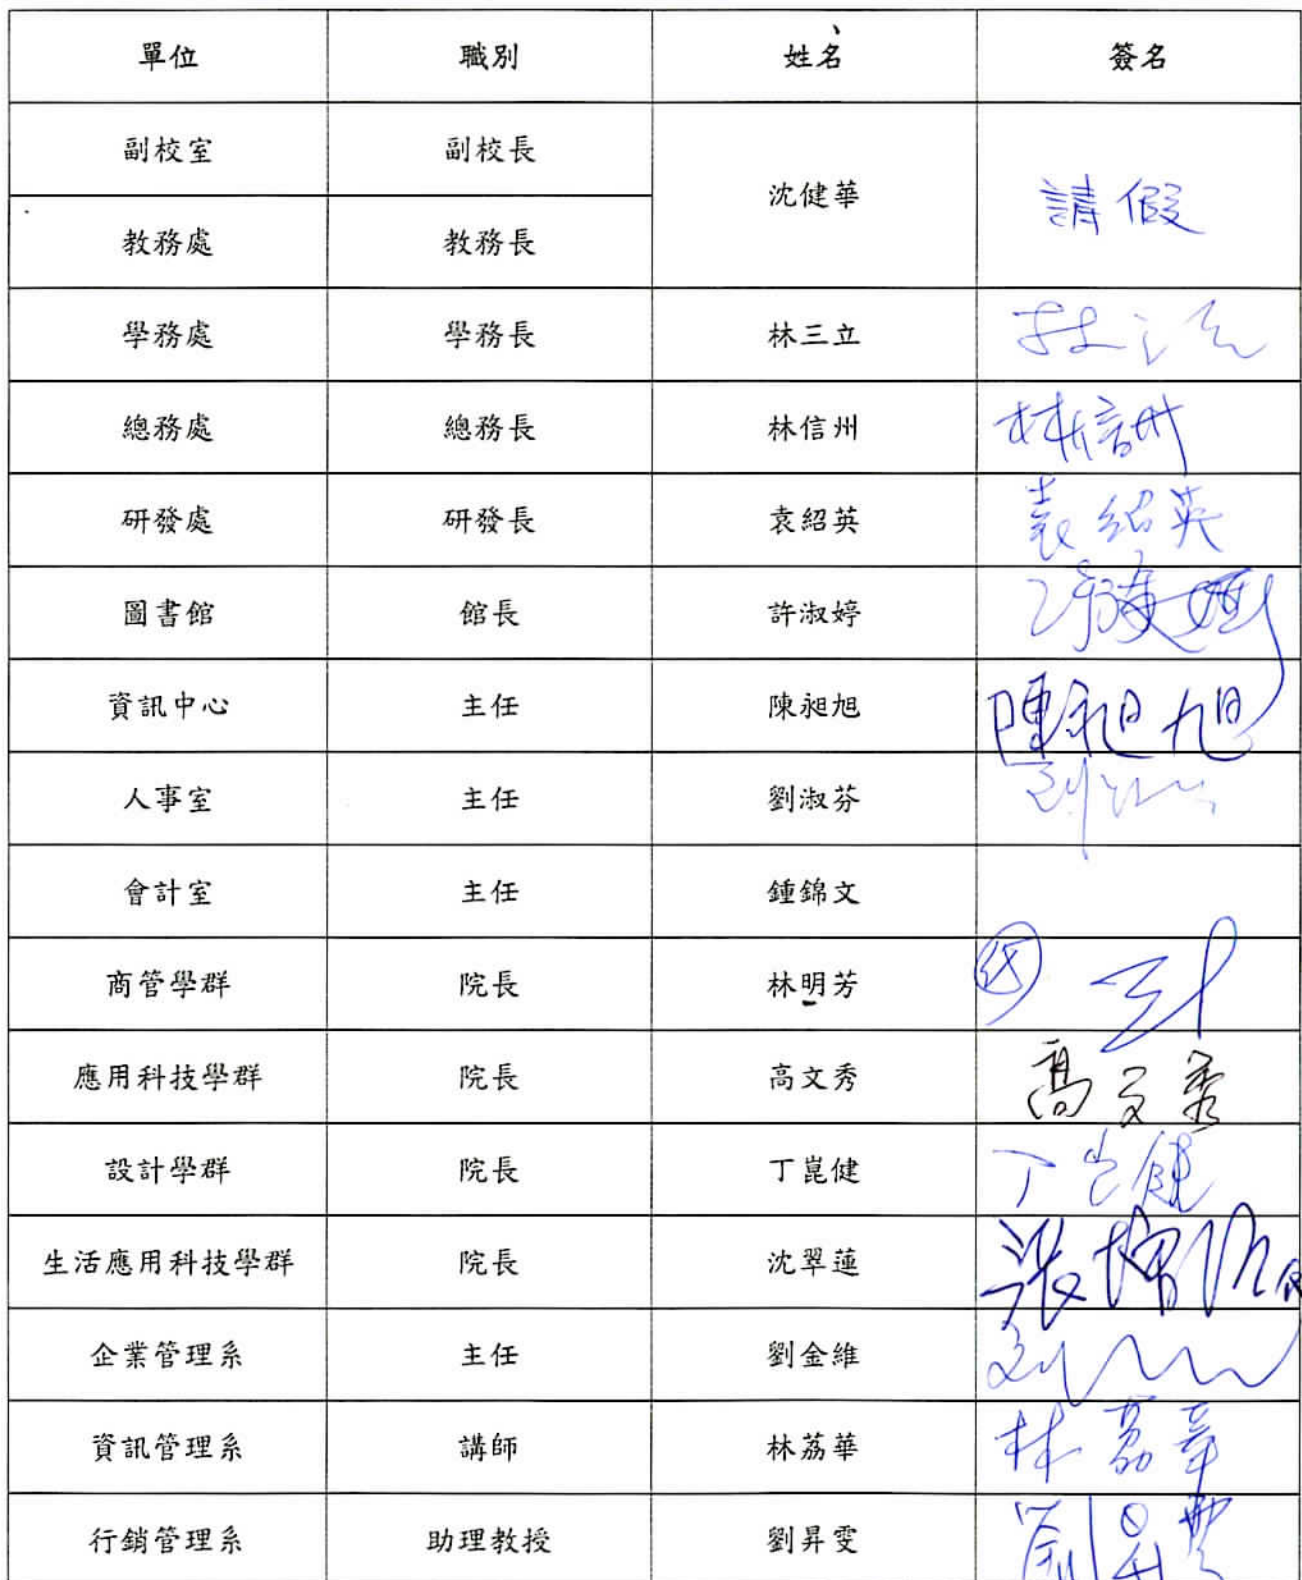 單位 職別 姓名 簽名
副校室 副校長 沈健華 請假
教務處 教務長
學務處 學務長 林三立
總務處 總務長 林信州 林信州
研發處 研發長 袁紹英 袁紹英
圖書館 館長 許淑婷
資訊中心 主任 陳昶旭 陳昶旭
人事室 主任 劉淑芬
會計室 主任 鍾錦文
商管學群 院長 林明芳
應用科技學群 院長 高文秀 高文秀
設計學群 院長 丁崑健 丁崑健
生活應用科技學群 院長 沈翠蓮
企業管理系 主任 劉金維
資訊管理系 講師 林荔華 林荔華
行銷管理系 助理教授 劉昇雯 劉昇雯